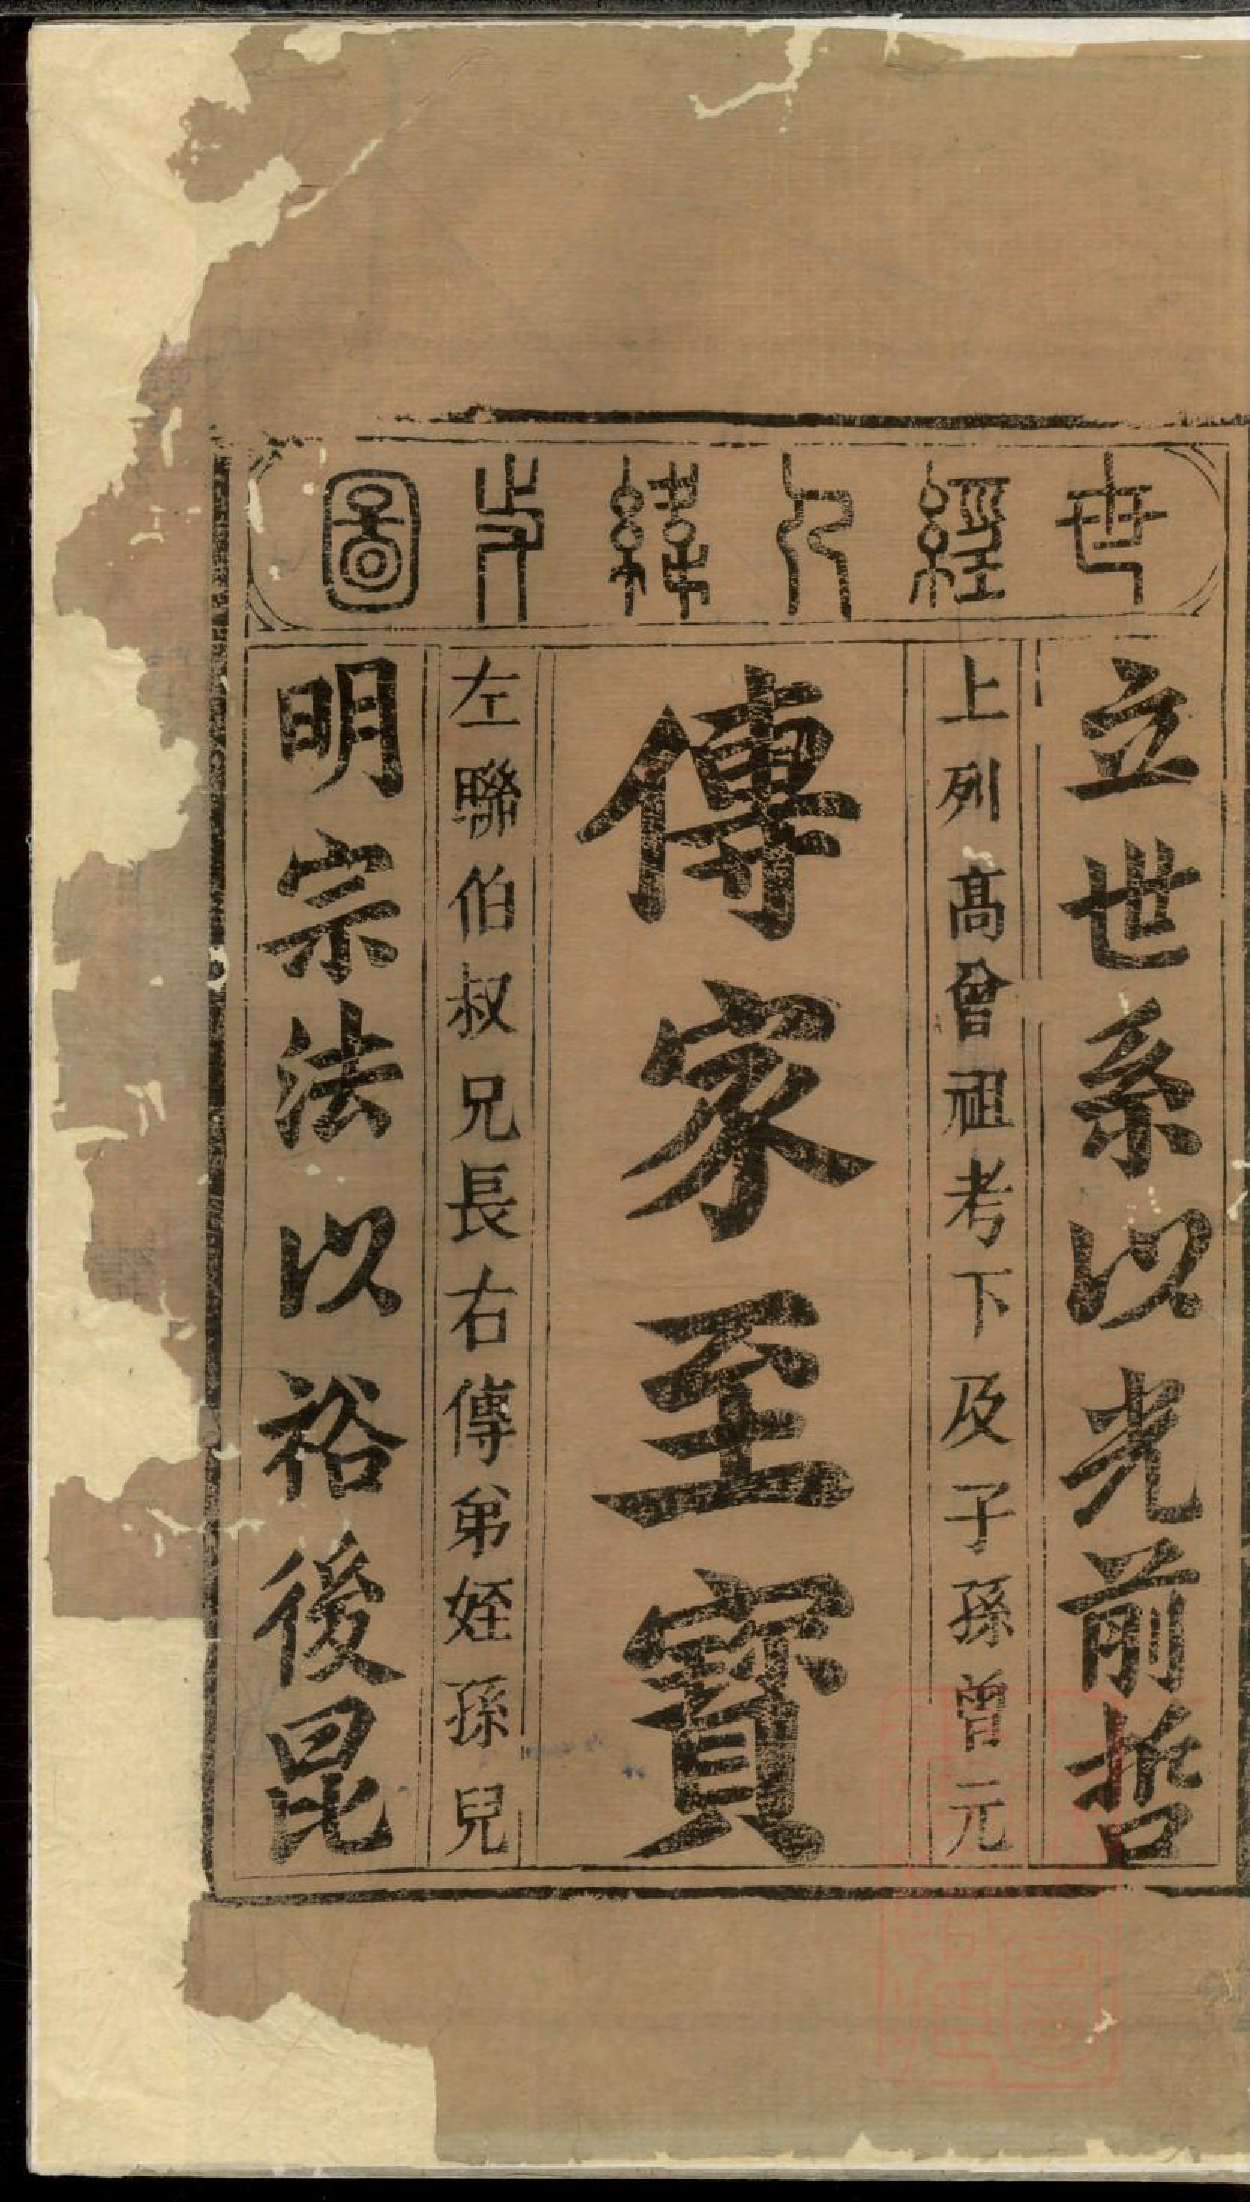 世經人緯圖
立世系以光前哲
上列高曾祖考下及子孫曾元
傳家至寶
左聯伯叔兄長右傳弟姪孫兒
明宗法以裕後昆